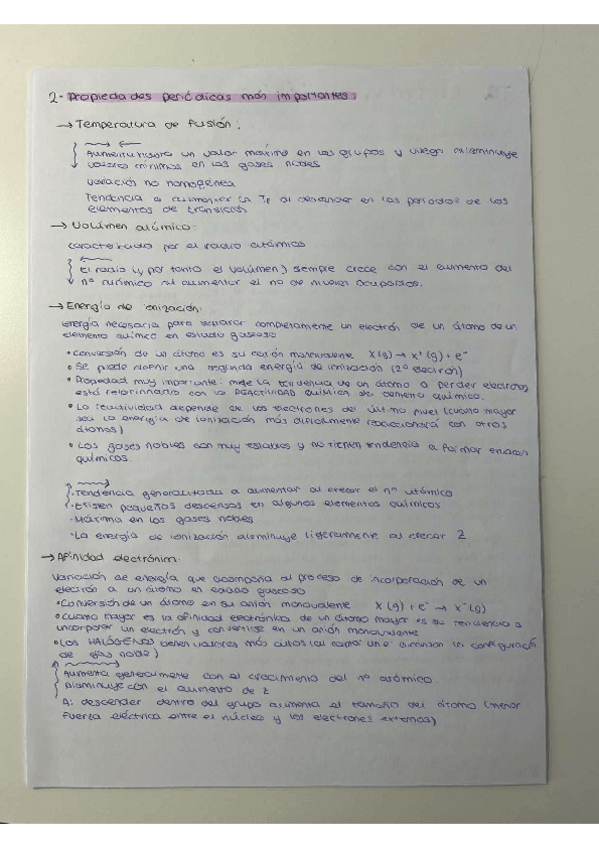 2- Propiedades periódicas más importantes:
→ Temperatura de fusión:
Aumenta hasta un valor máximo en los grupos y luego disminuye
valores mínimos en los gases nobles
Variación no homogénea
Tendencia a aumentar la Tf al descender en los períodos de los
elementos de transición
→ Volúmen atómico:
caracterizado por el radio atómico
El radio (y por tanto el volúmen) siempre crece con el aumento del
nº al aumentar el no de niveles ocupados.
→ Energía de ionización:
Energía necesaria para separar completamente un electrón de un átomo de un
elemento químico en estado gaseoso
• Conversión de un átomo es su catión monovalente X(g) → X⁺(g) + e⁻
• Se puede definir una segunda energía de ionización (2º electrón)
• Propiedad muy importante: mide la tendencia de un átomo a perder electrones
está relacionado con la REACTIVIDAD QUÍMICA del elemento químico.
• La reactividad depende de los electrones del último nivel (cuanto mayor
sea la energía de ionización más difícilmente reaccionará con otros
átomos)
• Los gases nobles son muy estables y no tienen tendencia a formar enlaces
químicos.
· Tendencia generalizada a aumentar al crecer el nº atómico
· Existen pequeños descensos en algunos elementos químicos
· Máxima en los gases nobles
· La energía de ionización disminuye ligeramente al crecer Z
→ Afinidad electrónica:
Variación de energía que acompaña al proceso de incorporación de un
electrón a un átomo en estado gaseoso
• Conversión de un átomo en su anión monovalente X(g) + e⁻ → X⁻(g)
• cuanto mayor es la afinidad electrónica de un átomo mayor es su tendencia a
incorporar un electrón y convertirse en un anión monovalente
• LOS HALÓGENOS tienen valores más altos (al tomar un e⁻ alcanzan la configuració
de gas noble)
Aumenta generalmente con el crecimiento del nº atómico.
Disminuye con el aumento de Z
Al descender dentro del grupo aumenta el tamaño del átomo (menor
fuerza eléctrica entre el núcleo y los electrones externos)